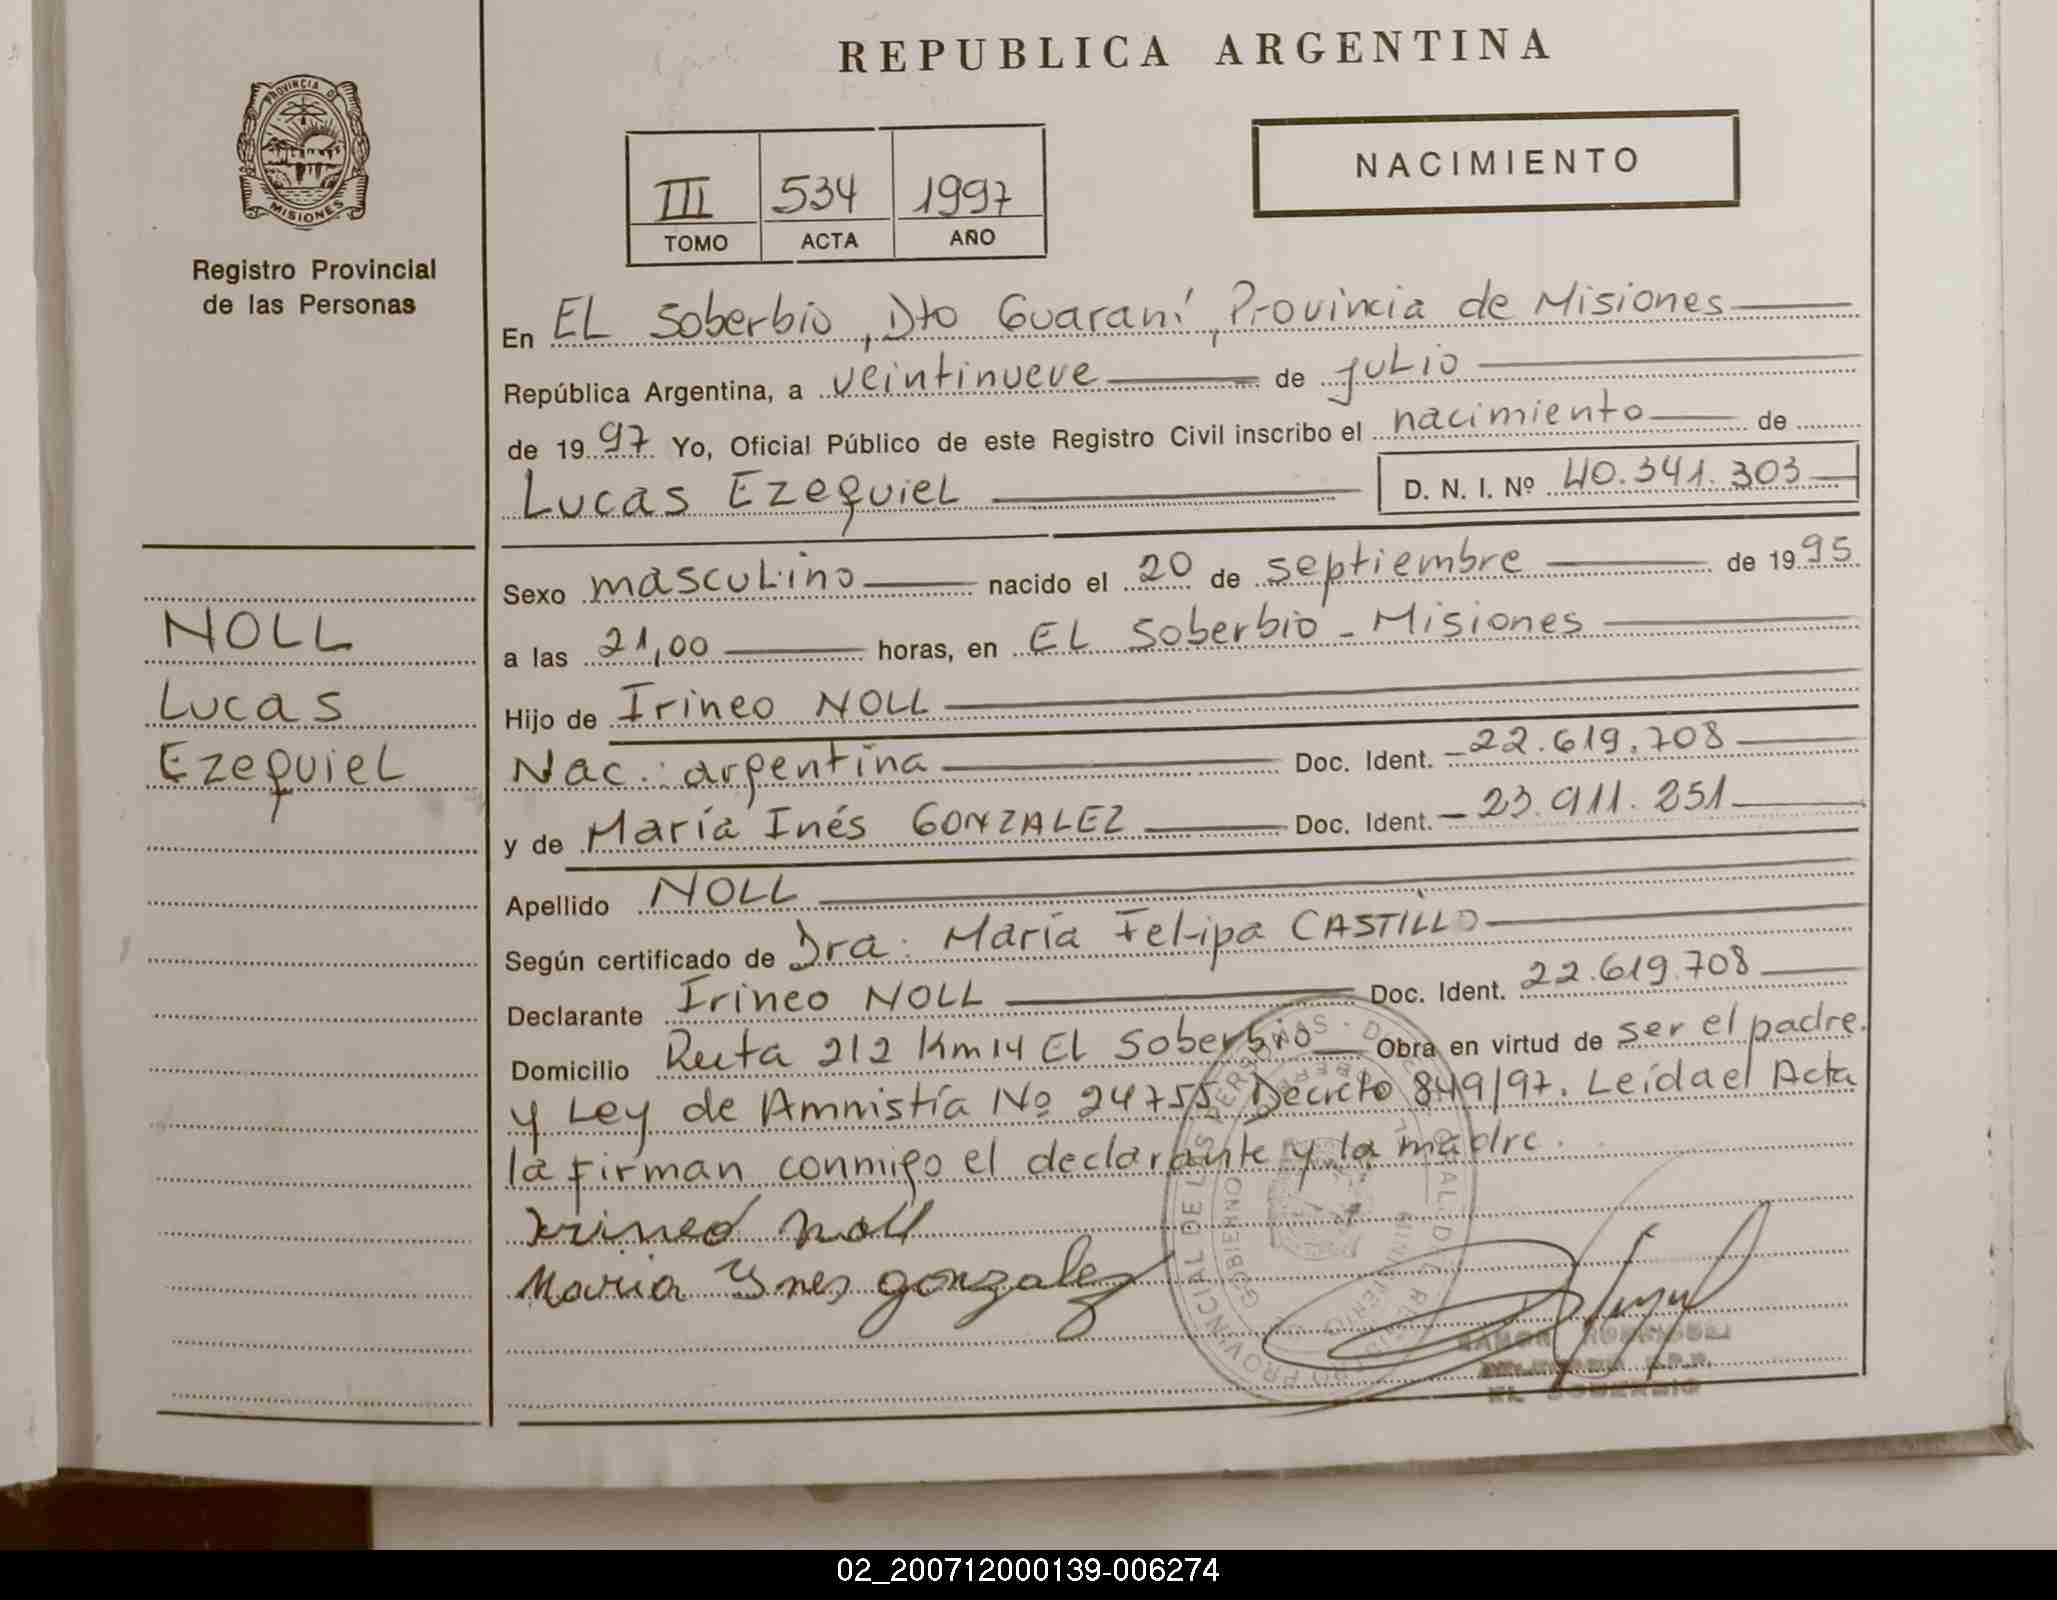 REPUBLICA ARGENTINA
PROVINCIA DE
MISIONES
Registro Provincial
de las Personas
III 534 1997
TOMO ACTA AÑO
NACIMIENTO
En EL Soberbio, Dto Guaraní, Provincia de Misiones
República Argentina, a veintinueve de julio
de 1997 Yo, Oficial Público de este Registro Civil inscribo el nacimiento de
Lucas Ezequiel D. N. I. Nº 40.341.303
Sexo masculino nacido el 20 de septiembre de 1995
a las 21,00 horas, en EL Soberbio - Misiones
Hijo de Irineo NOLL
Nac.: argentina Doc. Ident. 22.619.708
y de María Inés GONZALEZ Doc. Ident. 23.911.251
Apellido NOLL
Según certificado de Dra. María Felipa CASTILLO
Declarante Irineo NOLL Doc. Ident. 22.619.708
Domicilio Ruta 212 Km 14 El Soberbio Obra en virtud de ser el padre.
y Ley de Amnistía Nº 24755 Decreto 849/97. Leída el Acta
la firman conmigo el declarante y la madre.
Irineo Noll
Maria Ynes gonzalez
NOLL
Lucas
Ezequiel
EL SOBERBIO
02_200712000139-006274